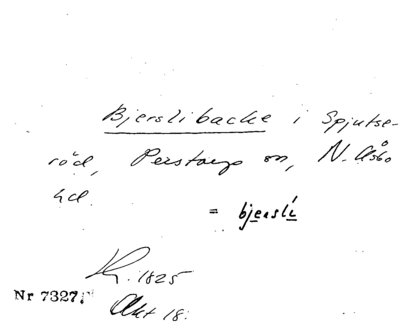 Bjerslibacke i Spjutse-
röd, Perstorps sn, N. Åsbo
hd.
= bjerslí
Kr. 1825
Akt 18.
Nr 7327.